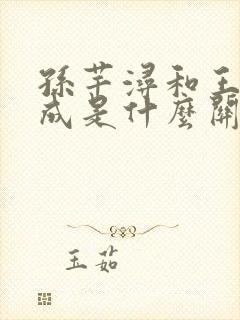 孫芊潯和王
成是什麼關
玉茹